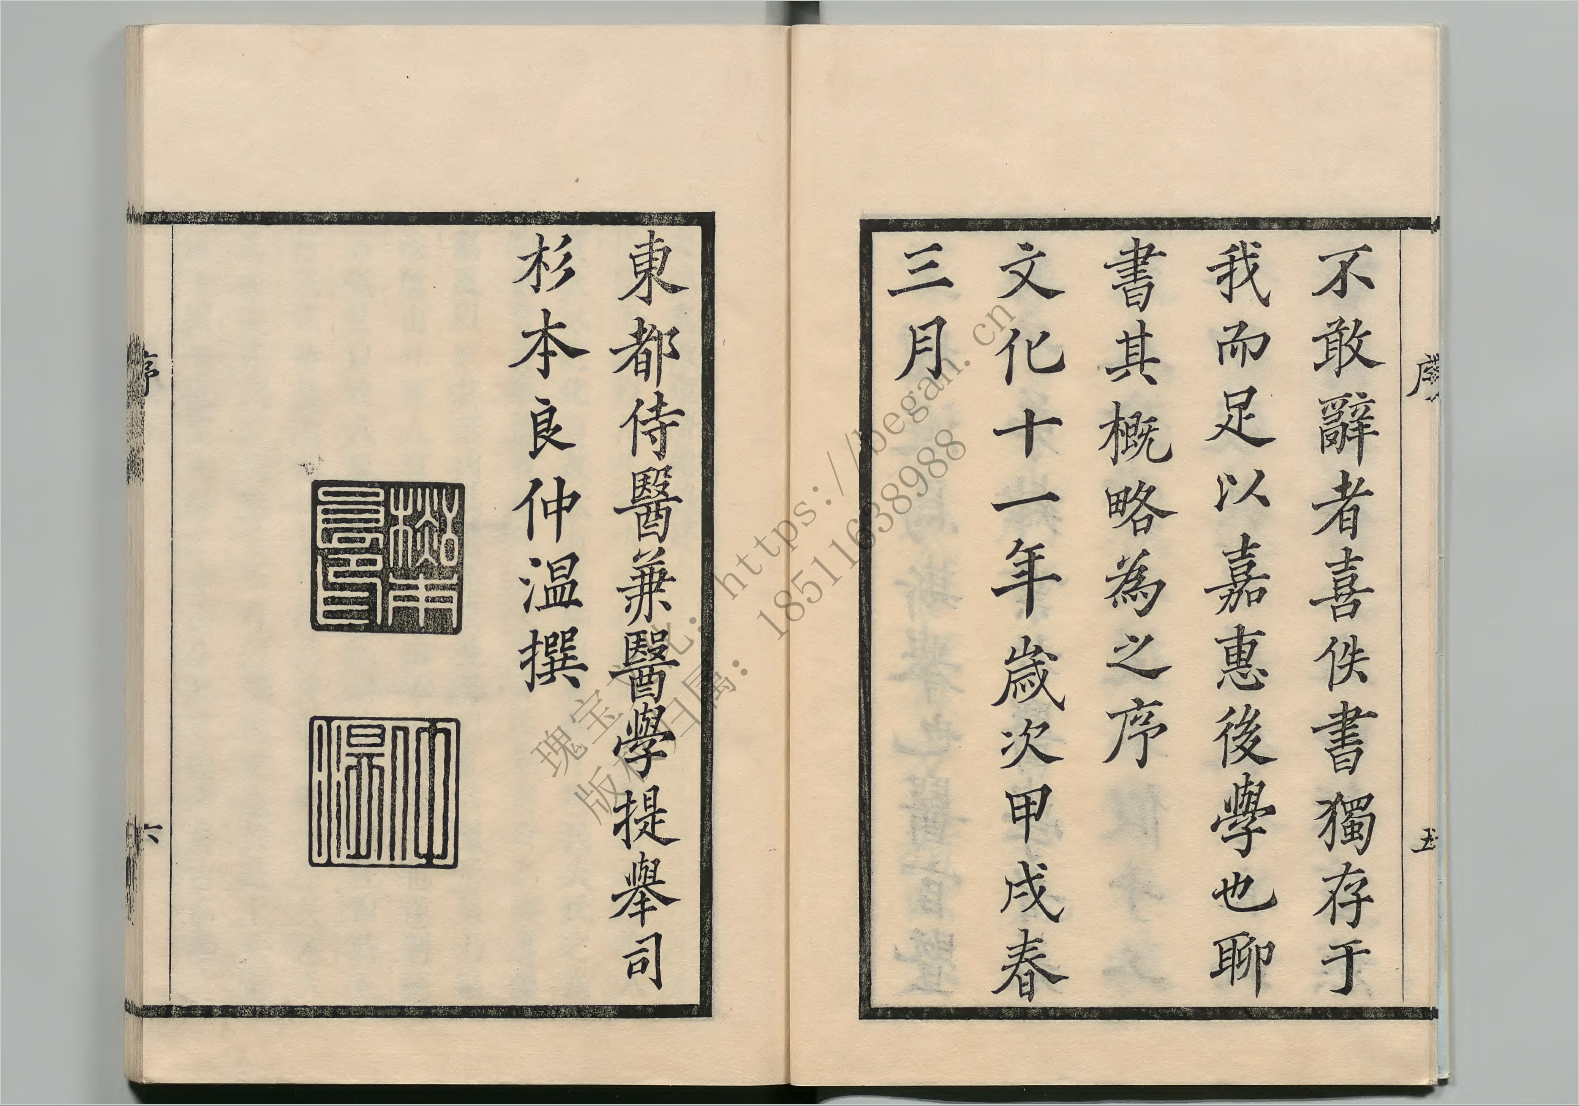 不敢辭者喜佚書獨存于
我而足以嘉惠後學也聊
書其概略為之序
文化十一年歲次甲戌春
三月
序
五
東都侍醫兼醫學提舉司
杉本良仲温撰
仲温
序
六
瑰宝文化：https://began.cn
版权归属：18511638988